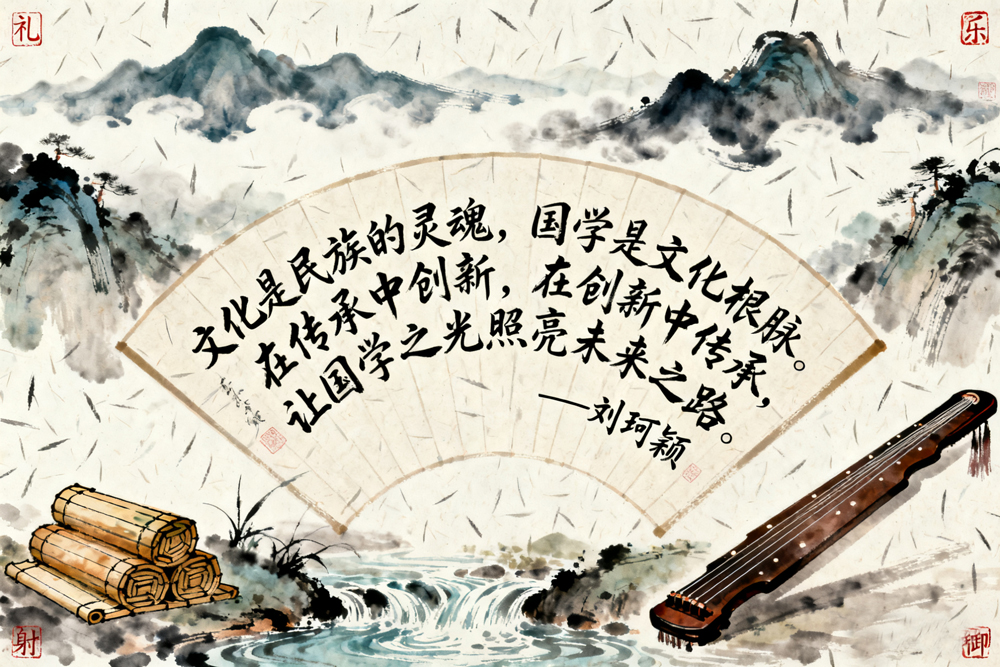 礼
乐
文化是民族的灵魂，国学是文化根脉。
在传承中创新，在创新中传承，
让国学之光照亮未来之路。
——刘珂颖
射
御